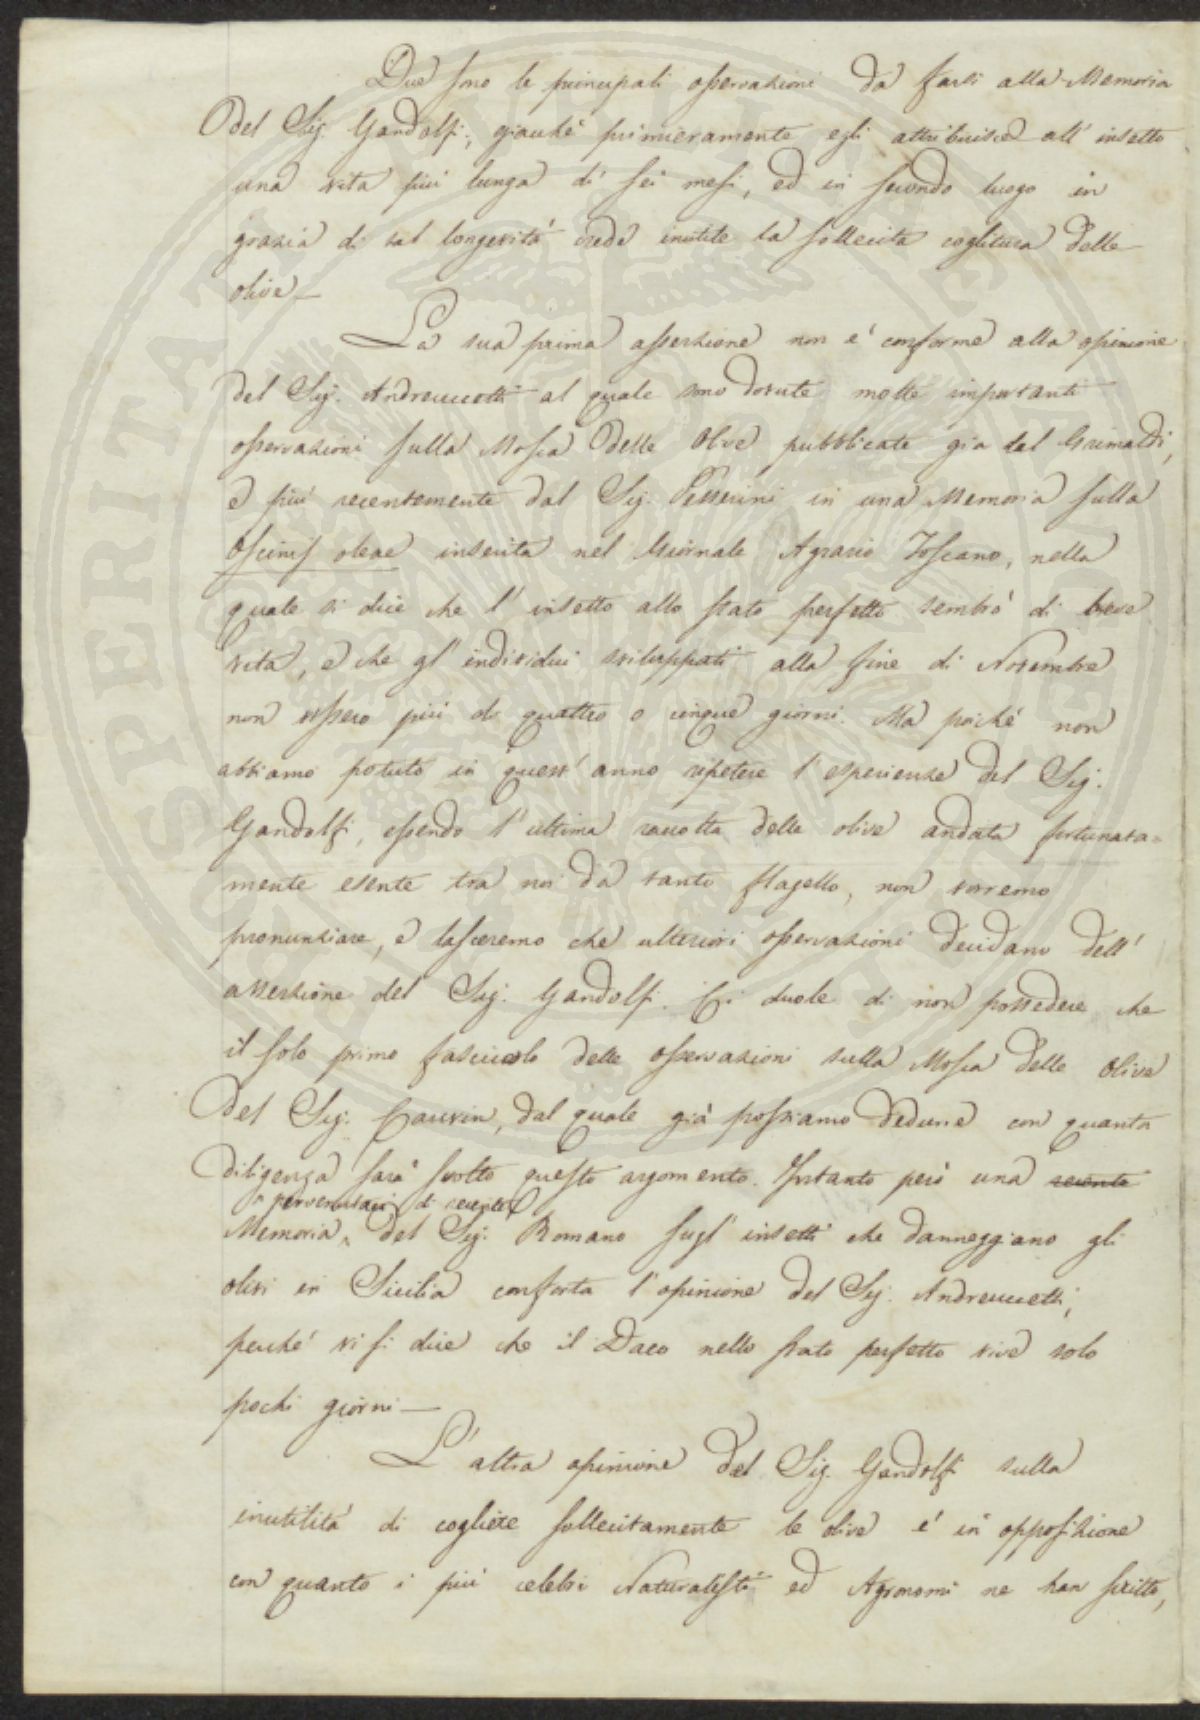 Due sono le principali osservazioni da farsi alla Memoria
del Sig. Gandolfi; giacchè primieramente egli attribuisce all' insetto
una vita più lunga di sei mesi, ed in secondo luogo in
grazia di tal longevità crede inutile la sollecita coglitura delle
olive —
La sua prima assersione non e' conforme alla opinione
del Sig. Andreuccetti al quale sono dovute molte importanti
osservazioni sulla Mosca delle Olive pubblicate gia dal Grimaldi,
e più recentemente dal Sig. Passerini in una Memoria sulla
Oscinis oleae inserita nel Giornale Agrario Toscano, nella
quale si dice che l' insetto allo stato perfetto sembrò di breve
vita, e che gl' individui sviluppati alla fine di Novembre
non vissero più di quattro o cinque giorni. Ma poichè non
abbiamo potuto in quest' anno ripetere l' esperienze del Sig.
Gandolfi, essendo l' ultima raccolta delle olive andata fortunata-
mente esente tra noi da tanto flagello, non vorremo
pronunziare, e lasceremo che ulteriori osservazioni decidano dell'
assersione del Sig. Gandolfi. Ci duole di non possedere che
il solo primo fascicolo delle osservazioni sulla Mosca delle Olive
del Sig. Cauvin, dal quale già possiamo dedurre con quanta
diligenza sarà svolto questo argomento. Intanto però una recente
pervenutaci di recente
Memoria del Sig. Romano sugl' insetti che danneggiano gli
olivi in Sicilia conforta l' opinione del Sig. Andreuccetti,
perchè vi si dice che il Daco nello stato perfetto vive solo
pochi giorni —
L' altra opinione del Sig. Gandolfi sulla
inutilità di cogliere sollecitamente le olive e' in opposizione
con quanto i più celebri Naturalisti ed Agronomi ne han scritto,